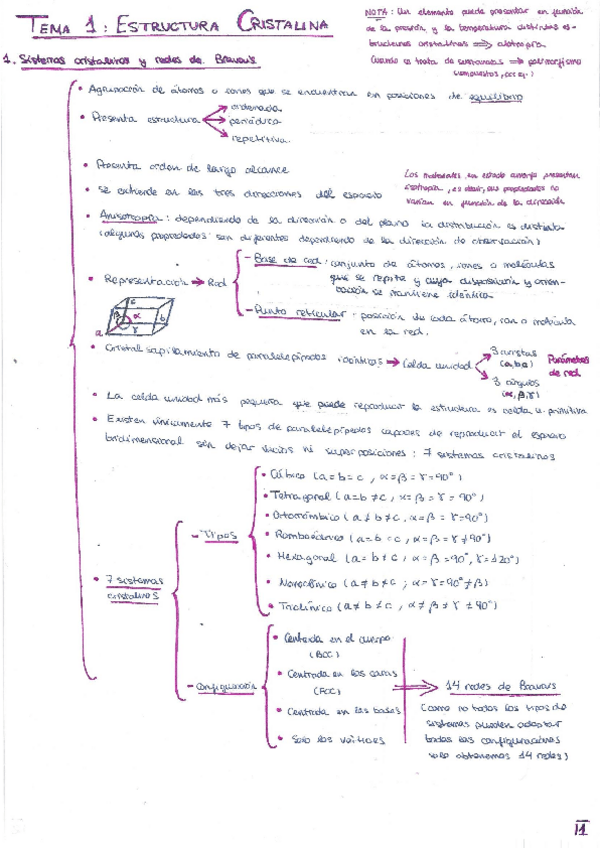 TEMA 1: ESTRUCTURA CRISTALINA
NOTA: Un elemento puede presentar en función
de la presión y la temperatura distintas es-
tructuras cristalinas ⟹ alotropía
Cuando se trata de sustancias ⟹ polimorfismo
1. Sistemas cristalinos y redes de Bravais
• Agrupación de átomos o iones que se encuentran en posiciones de equilibrio
• Presenta estructura
ordenada
periódica
repetitiva.
• Presenta orden de largo alcance
• Se extiende en las tres direcciones del espacio
Los materiales en estado amorfo presentan
isotropía, es decir, sus propiedades no
varían en función de la dirección
• Anisotropía: dependiendo de la dirección o del plano la distribución es distinta
(algunas propiedades son diferentes dependiendo de la dirección de observación)
• Representación → Red
- Base de red: conjunto de átomos, iones o moléculas
que se repite y cuya disposición y orien-
tación se mantiene idéntica.
- Punto reticular: posición de cada átomo, ion o molécula
en la red.
c
β α b
a γ
• Cristal: apilamiento de paralelepípedos idénticos → Celda unidad
3 aristas
(a,b,c)
3 ángulos
(α,β,γ)
Parámetros
de red
• La celda unidad más pequeña que puede reproducir la estructura es celda u. primitiva
• Existen únicamente 7 tipos de paralelepípedos capaces de reproducir el espacio
tridimensional sin dejar vacíos ni superposiciones: 7 sistemas cristalinos
• 7 sistemas
cristalinos
- Tipos
• Cúbico (a=b=c, α=β=γ=90°)
• Tetragonal (a=b≠c, α=β=γ=90°)
• Ortorrómbico (a≠b≠c, α=β=γ=90°)
• Romboédrico (a=b=c, α=β=γ≠90°)
• Hexagonal (a=b≠c, α=β=90°, γ=120°)
• Monoclínico (a≠b≠c; α=γ=90°≠β)
• Triclínico (a≠b≠c, α≠β≠γ≠90°)
- Configuración
• Centrada en el cuerpo
(BCC)
• Centrada en las caras
(FCC)
• Centrada en las bases
• Solo los vértices
⟹ 14 redes de Bravais
(como no todos los tipos de
sistemas pueden adoptar
todas las configuraciones
solo obtenemos 14 redes)
1